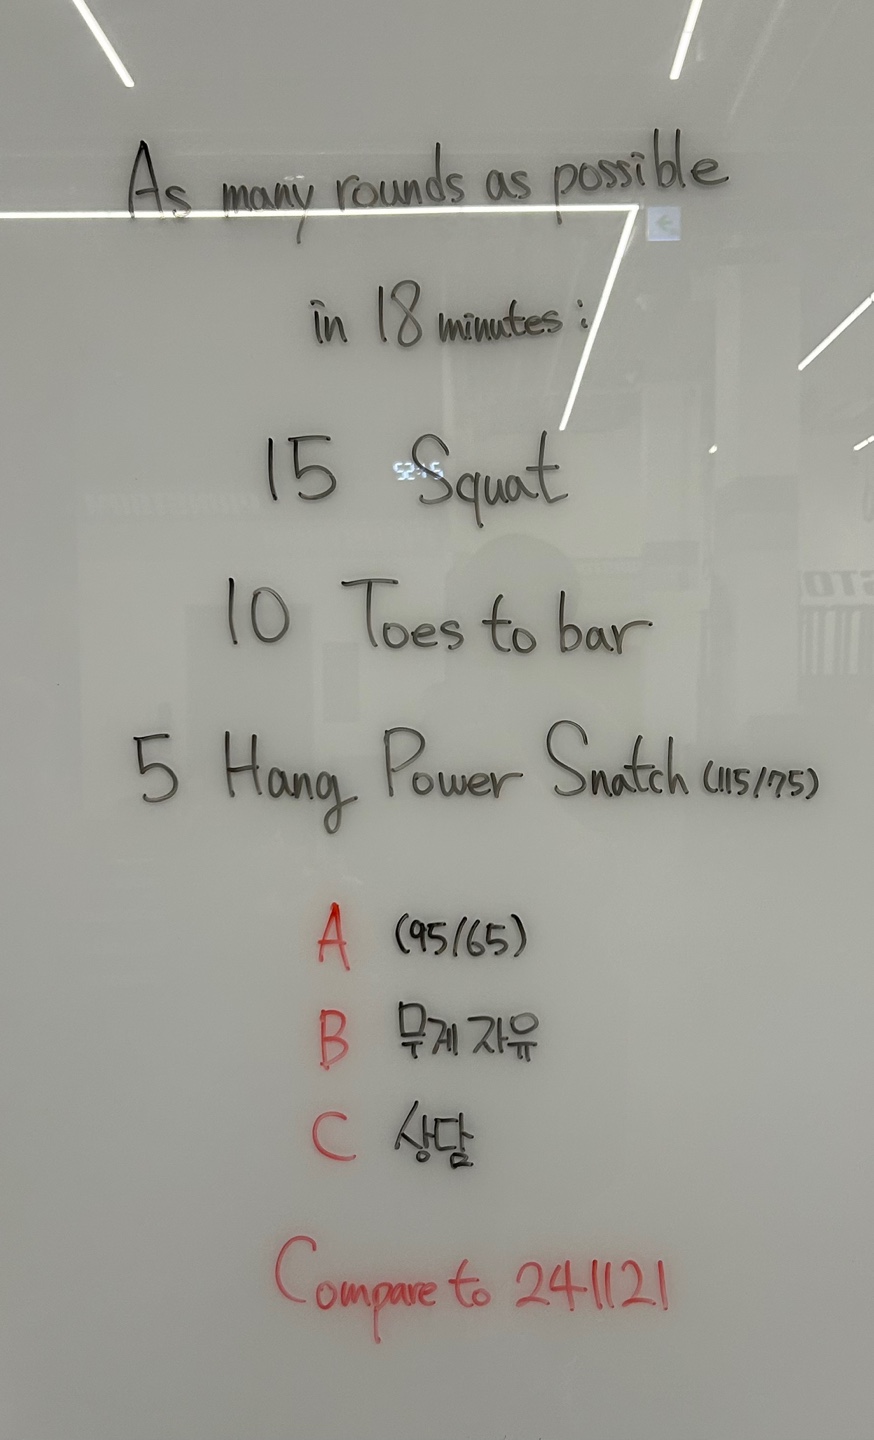 As many rounds as possible
in 18 minutes:
15 Squat
10 Toes to bar
5 Hang Power Snatch (115/75)
A (95/65)
B 무게 자유
C 상담
Compare to 241121